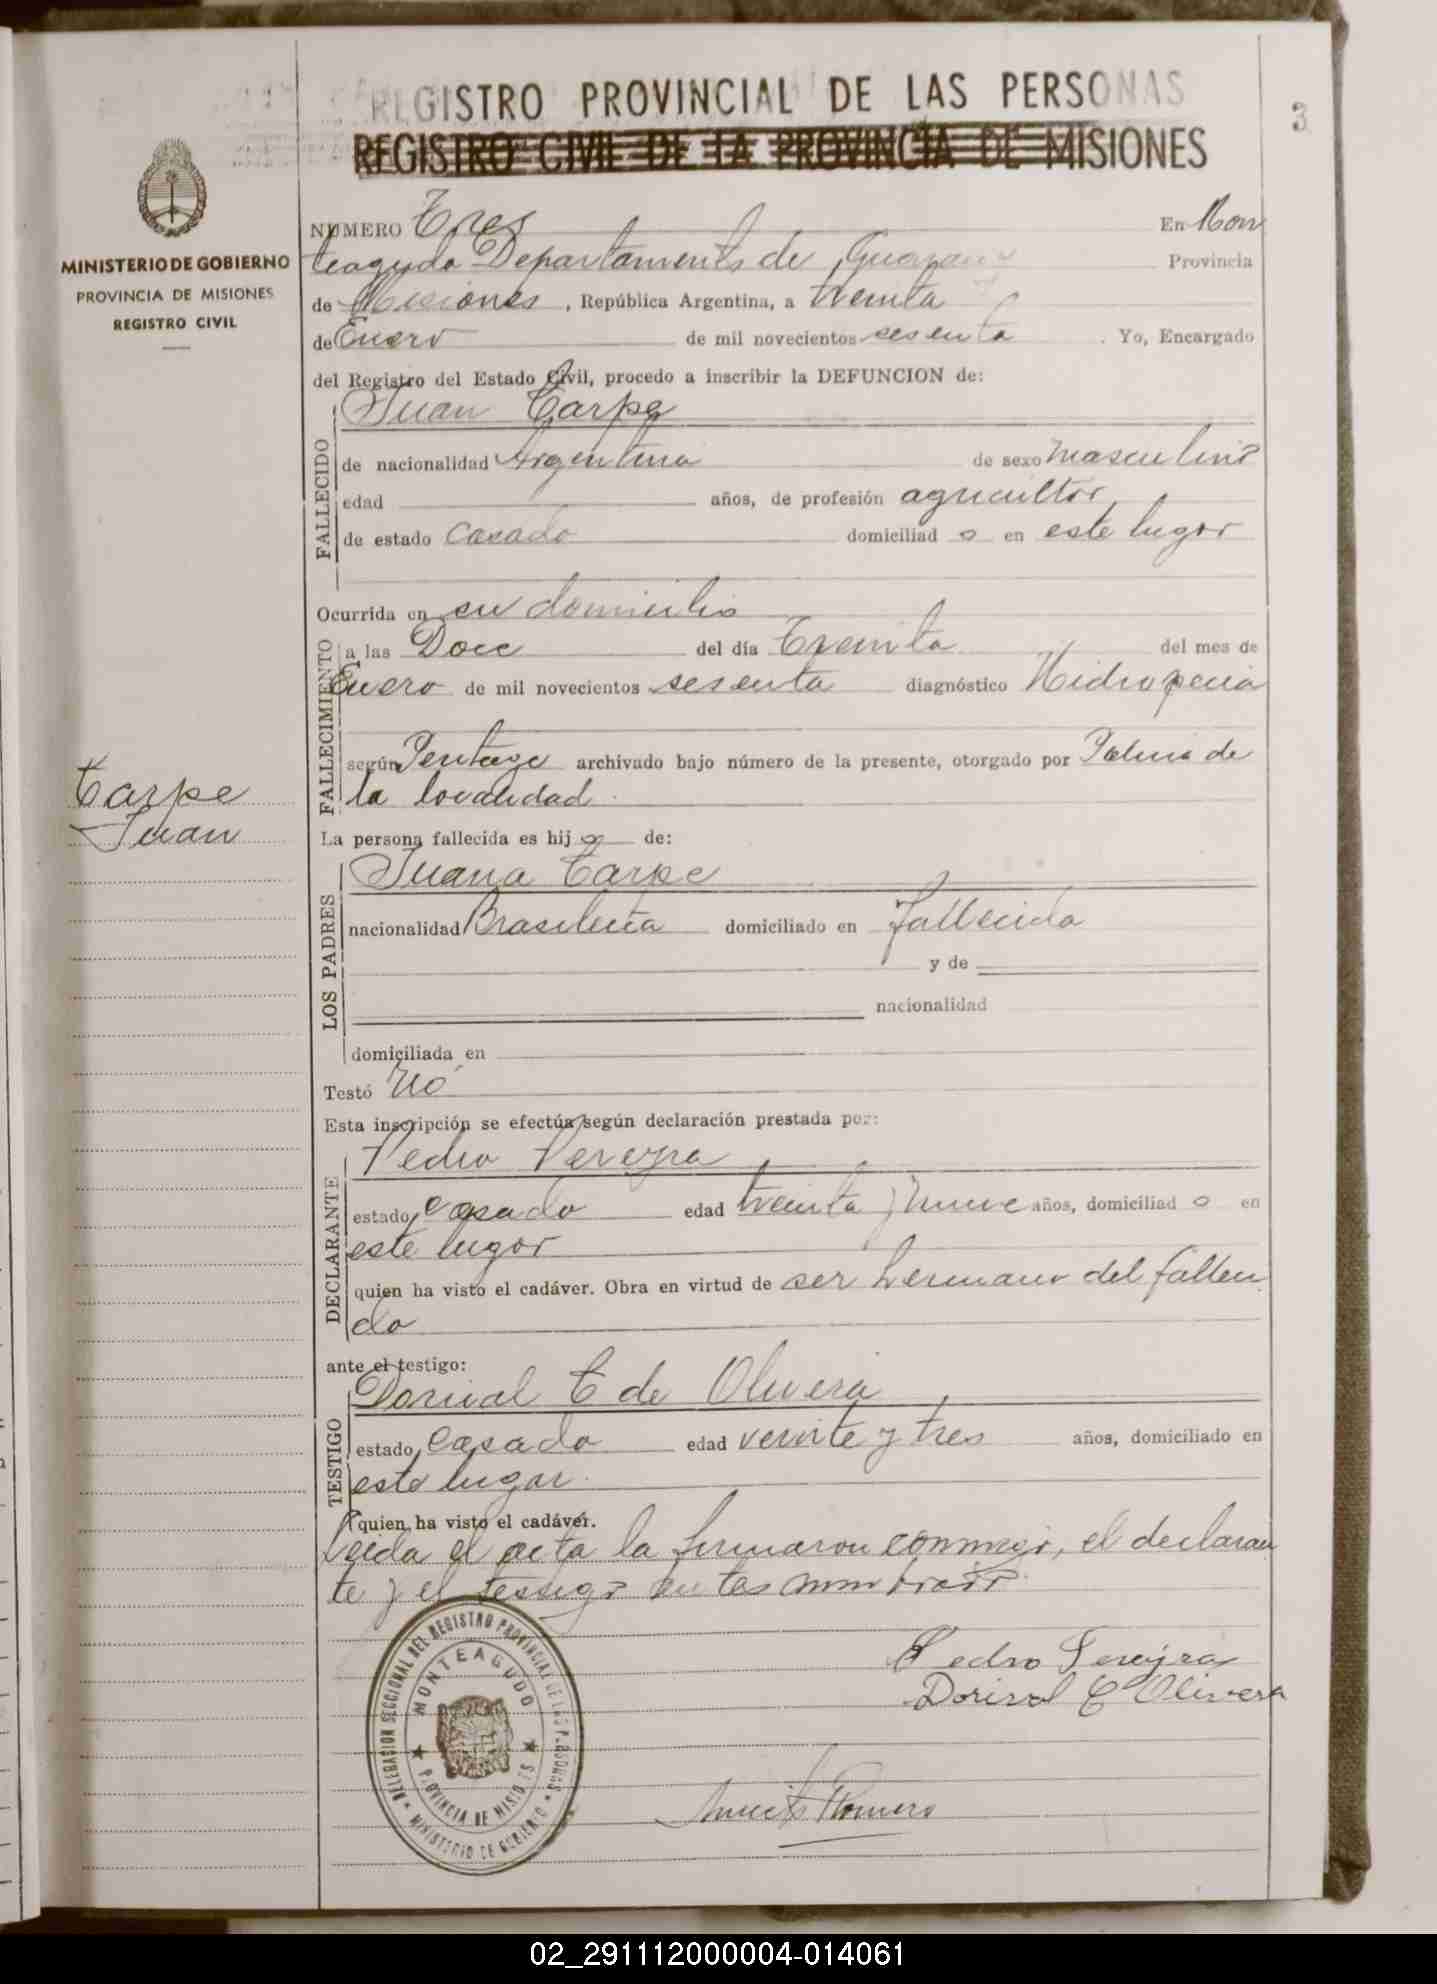 REGISTRO PROVINCIAL DE LAS PERSONAS
REGISTRO CIVIL DE LA PROVINCIA DE MISIONES
3
MINISTERIO DE GOBIERNO
PROVINCIA DE MISIONES
REGISTRO CIVIL
NUMERO Tres En Mon
teagudo Departamento de Guarani Provincia
de Misiones, República Argentina, a treinta
de Enero de mil novecientos sesenta. Yo, Encargado
del Registro del Estado Civil, procedo a inscribir la DEFUNCION de:
Juan Tarpe
FALLECIDO
de nacionalidad Argentina de sexo masculino
edad años, de profesión agricultor
de estado casado domiciliad o en este lugar
Ocurrida en su domicilio
FALLECIMIENTO
a las Doce del día Treinta del mes de
Enero de mil novecientos sesenta diagnóstico Hidropecia
según archivado bajo número de la presente, otorgado por de
la localidad.
Tarpe
Juan
La persona fallecida es hij o de:
LOS PADRES
Juana Tarpe
nacionalidad Brasileña domiciliado en fallecida
y de
nacionalidad
domiciliada en
Testó No
Esta inscripción se efectúa según declaración prestada por:
DECLARANTE
Pedro Pereyra
estado casado edad treinta y nueve años, domiciliad o en
este lugar
quien ha visto el cadáver. Obra en virtud de ser hermano del falleci
do
ante el testigo:
TESTIGO
Dorival C de Olivera
estado casado edad veinte y tres años, domiciliado en
este lugar.
quien ha visto el cadáver.
Leida el acta la firmaron conmigo, el declaran
te y el testigo antes nombrado.
DELEGACION SECCIONAL DEL REGISTRO PROVINCIAL DE LAS PERSONAS
MONTEAGUDO
PROVINCIA DE MISIONES
MINISTERIO DE GOBIERNO
Pedro Pereyra
Dorival C Olivera
Romero
02_291112000004-014061